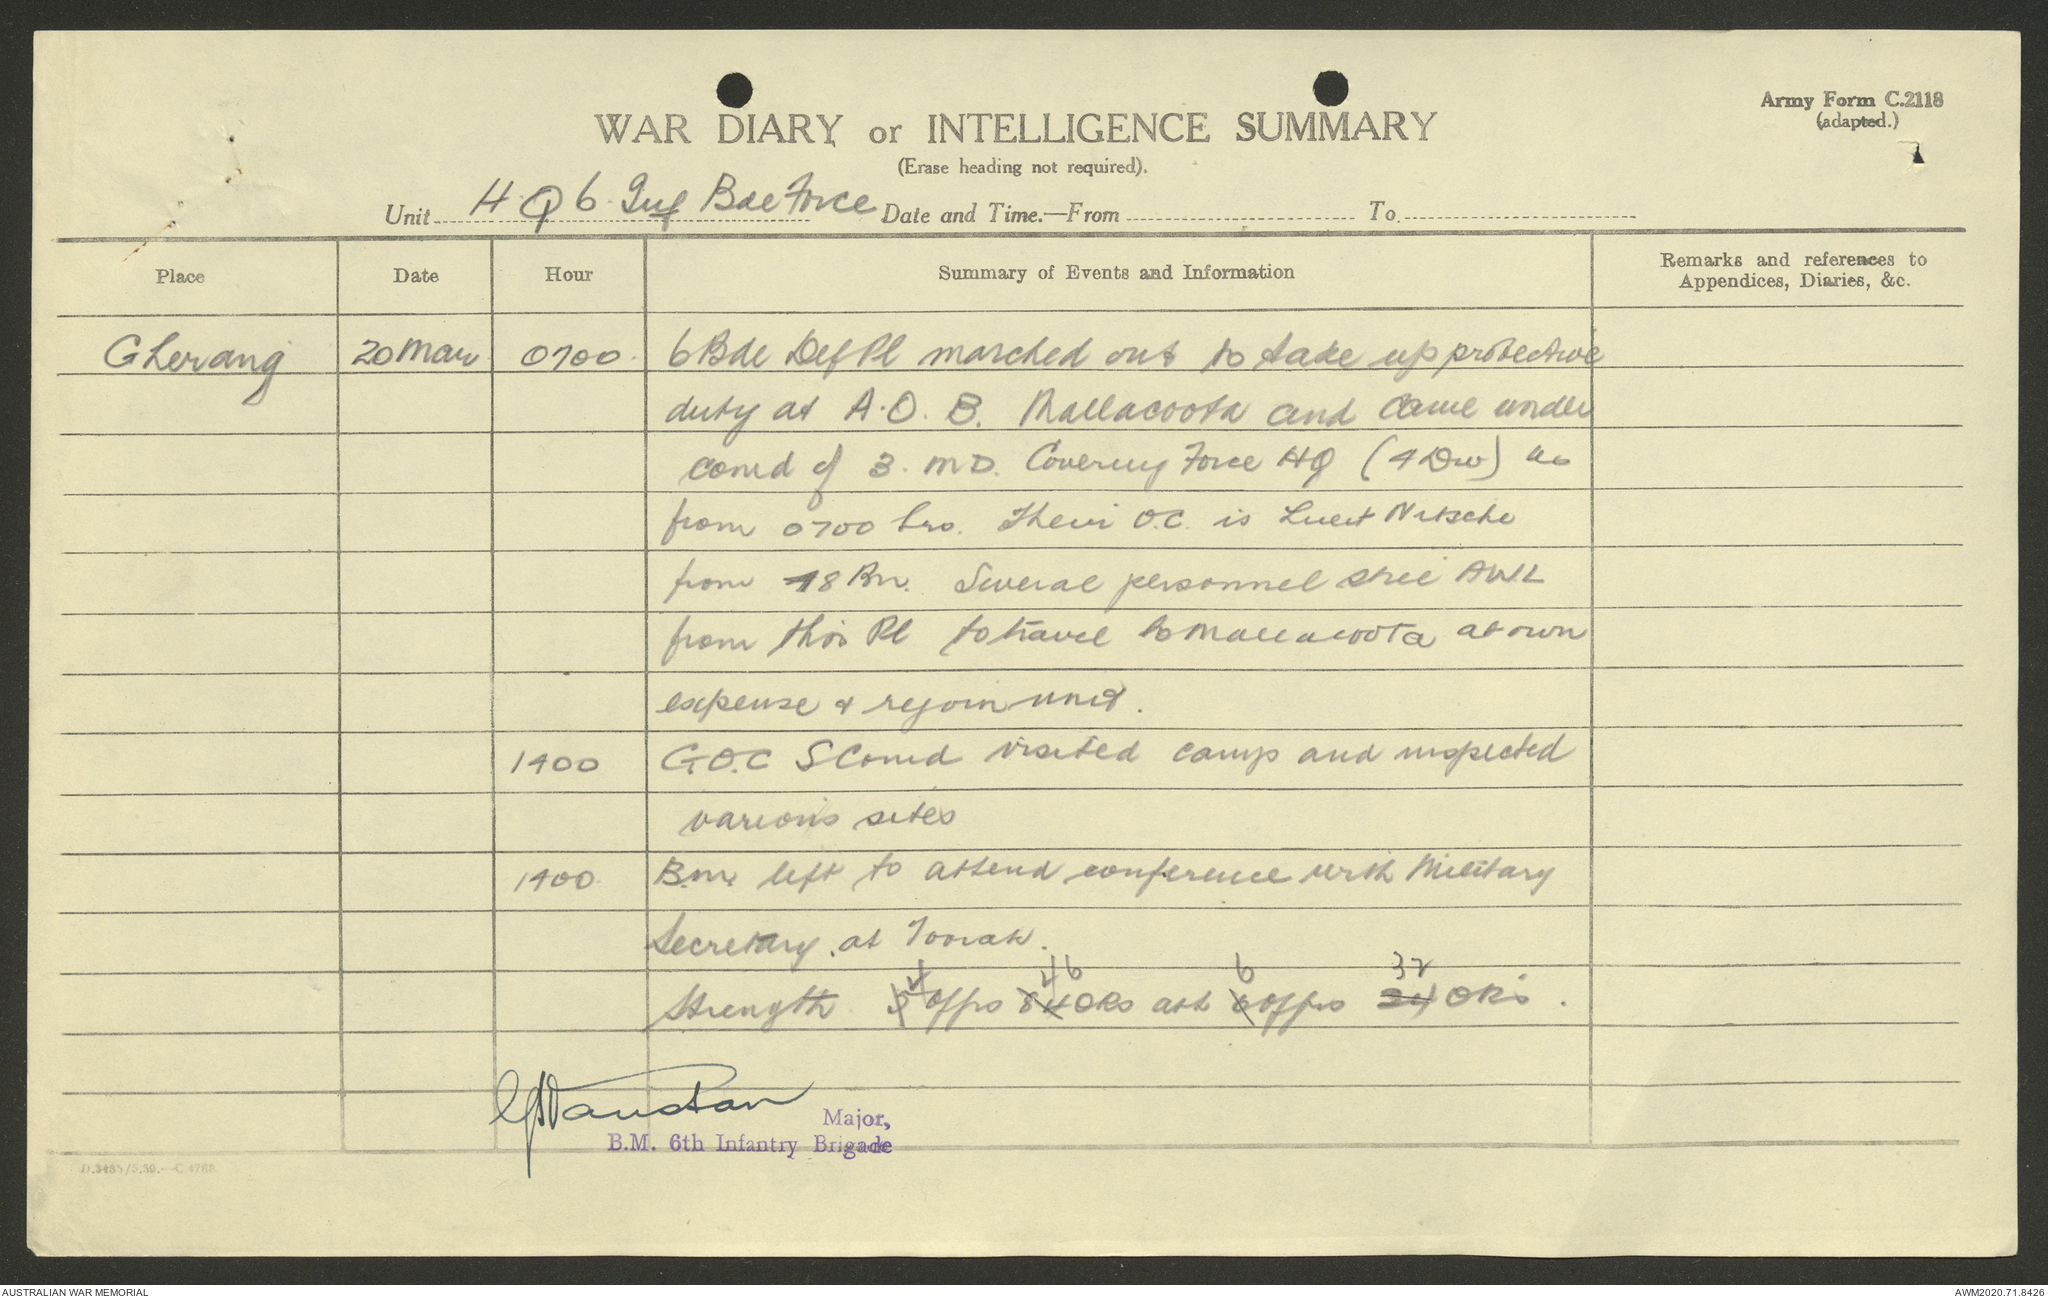 Army Form C.2118
(adapted.)
WAR DIARY or INTELLIGENCE SUMMARY
(Erase heading not required).
Unit H.Q 6 Inf Bde Force Date and Time.—From To
Place Date Hour Summary of Events and Information Remarks and references to
Appendices, Diaries, &c.
Gherang 20 Mar 0700 6 Bde Def Pl marched out to take up protective
duty at A.O.B. Mallacoota and came under
comd of 3. M D. Covering Force HQ (4 Div) as
from 0700 hrs. Their O.C. is Lieut Nitsche
from 48 Bn. Several personnel still AWL
from this Pl to travel to Mallacoota at own
expense & rejoin unit.
1400 G.O.C S Comd visited camp and inspected
various sites
1400 B.M. left to attend conference with Military
Secretary at Toorak.
4 46 6 32
Strength Offrs ORs att Offrs 24 ORs.
Major,
B.M. 6th Infantry Brigade
AUSTRALIAN WAR MEMORIAL
AWM2020.71.8426